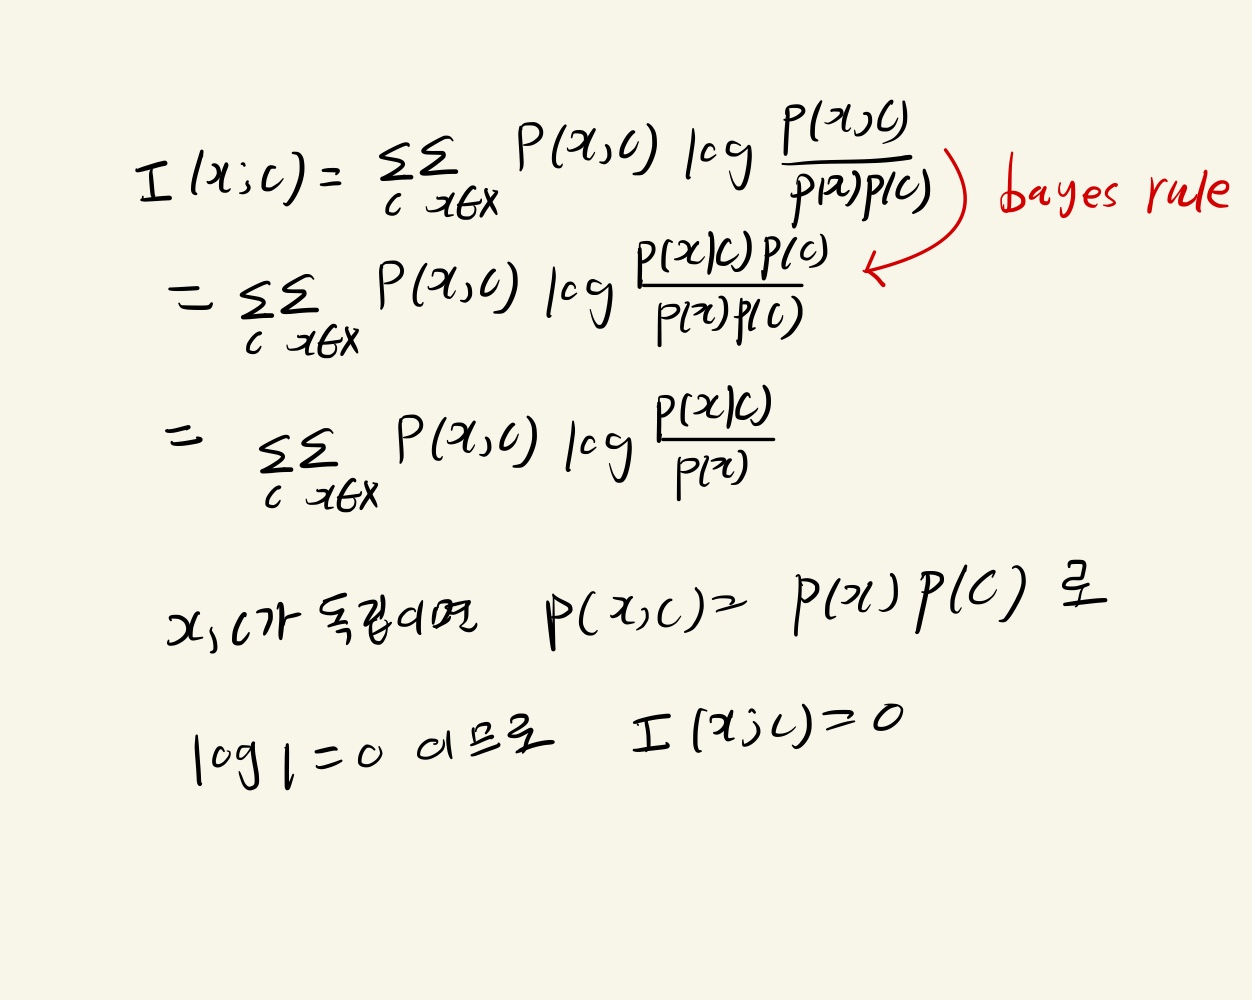 I(x;c) = ΣΣ P(x,c) log p(x,c)/p(x)p(c) bayes rule
c x∈X
= ΣΣ P(x,c) log p(x|c)p(c)/p(x)p(c)
c x∈X
= ΣΣ P(x,c) log p(x|c)/p(x)
c x∈X
x, c가 독립이면 p(x,c) = p(x)p(c) 로
log 1 = 0 이므로 I(x;c) = 0